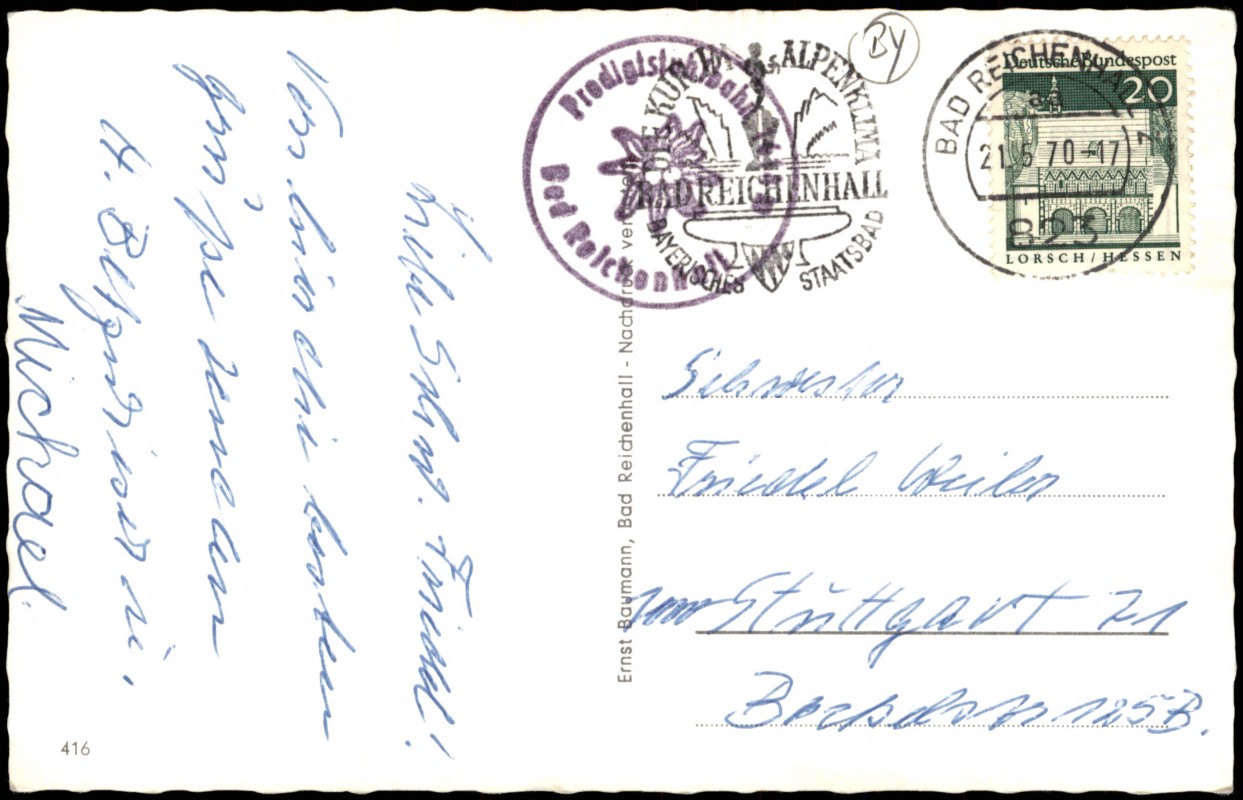 Liebe Schw. Friedel!
grüße senden
Michael.
416
Ernst Baumann, Bad Reichenhall - Nachdruck ver
Predigtstuhlbahn
Bad Reichenhall
ALPENKLIMA
BAD REICHENHALL
BAYERISCHES STAATSBAD
By
BAD REICHENHALL 1
aa
21.5.70-17
823
Deutsche Bundespost
20
LORSCH / HESSEN
Schwester
Friedel Weiler
Stuttgart 71
125B.